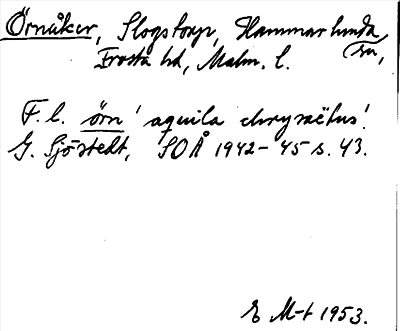 Örnåker, Slogstorp, Hammarlunda
sn,
Frosta hd, Malm. l.
F.l. örn 'aquila chrysaëtus'.
G. Sjöstedt, SOÅ 1942-45 s. 43.
E M-t 1953.